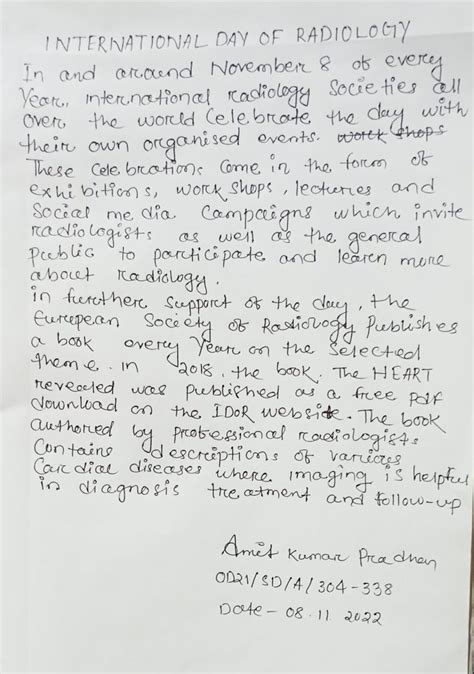 INTERNATIONAL DAY OF RADIOLOGY
In and around November 8 of every
Year, international radiology Societies all
over the world Celebrate the day with
their own organised events. work shops
These Celebrations Come in the form of
exhibitions, work shops, lectures and
Social media Campaigns which invite
radiologists as well as the general
public to participate and learn more
about radiology.
in further support of the day, the
European Society of Radiology Publishes
a book every Year on the selected
theme. in 2018, the book. The HEART
revealed was published as a free pdf
download on the IDOR website. The book
authored by professional radiologists.
Contains descriptions of various
Cardiac diseases where imaging is helpful
in diagnosis treatment and follow-up
Amit Kumar Pradhan
OD21/SD/A/304-338
Date - 08.11.2022